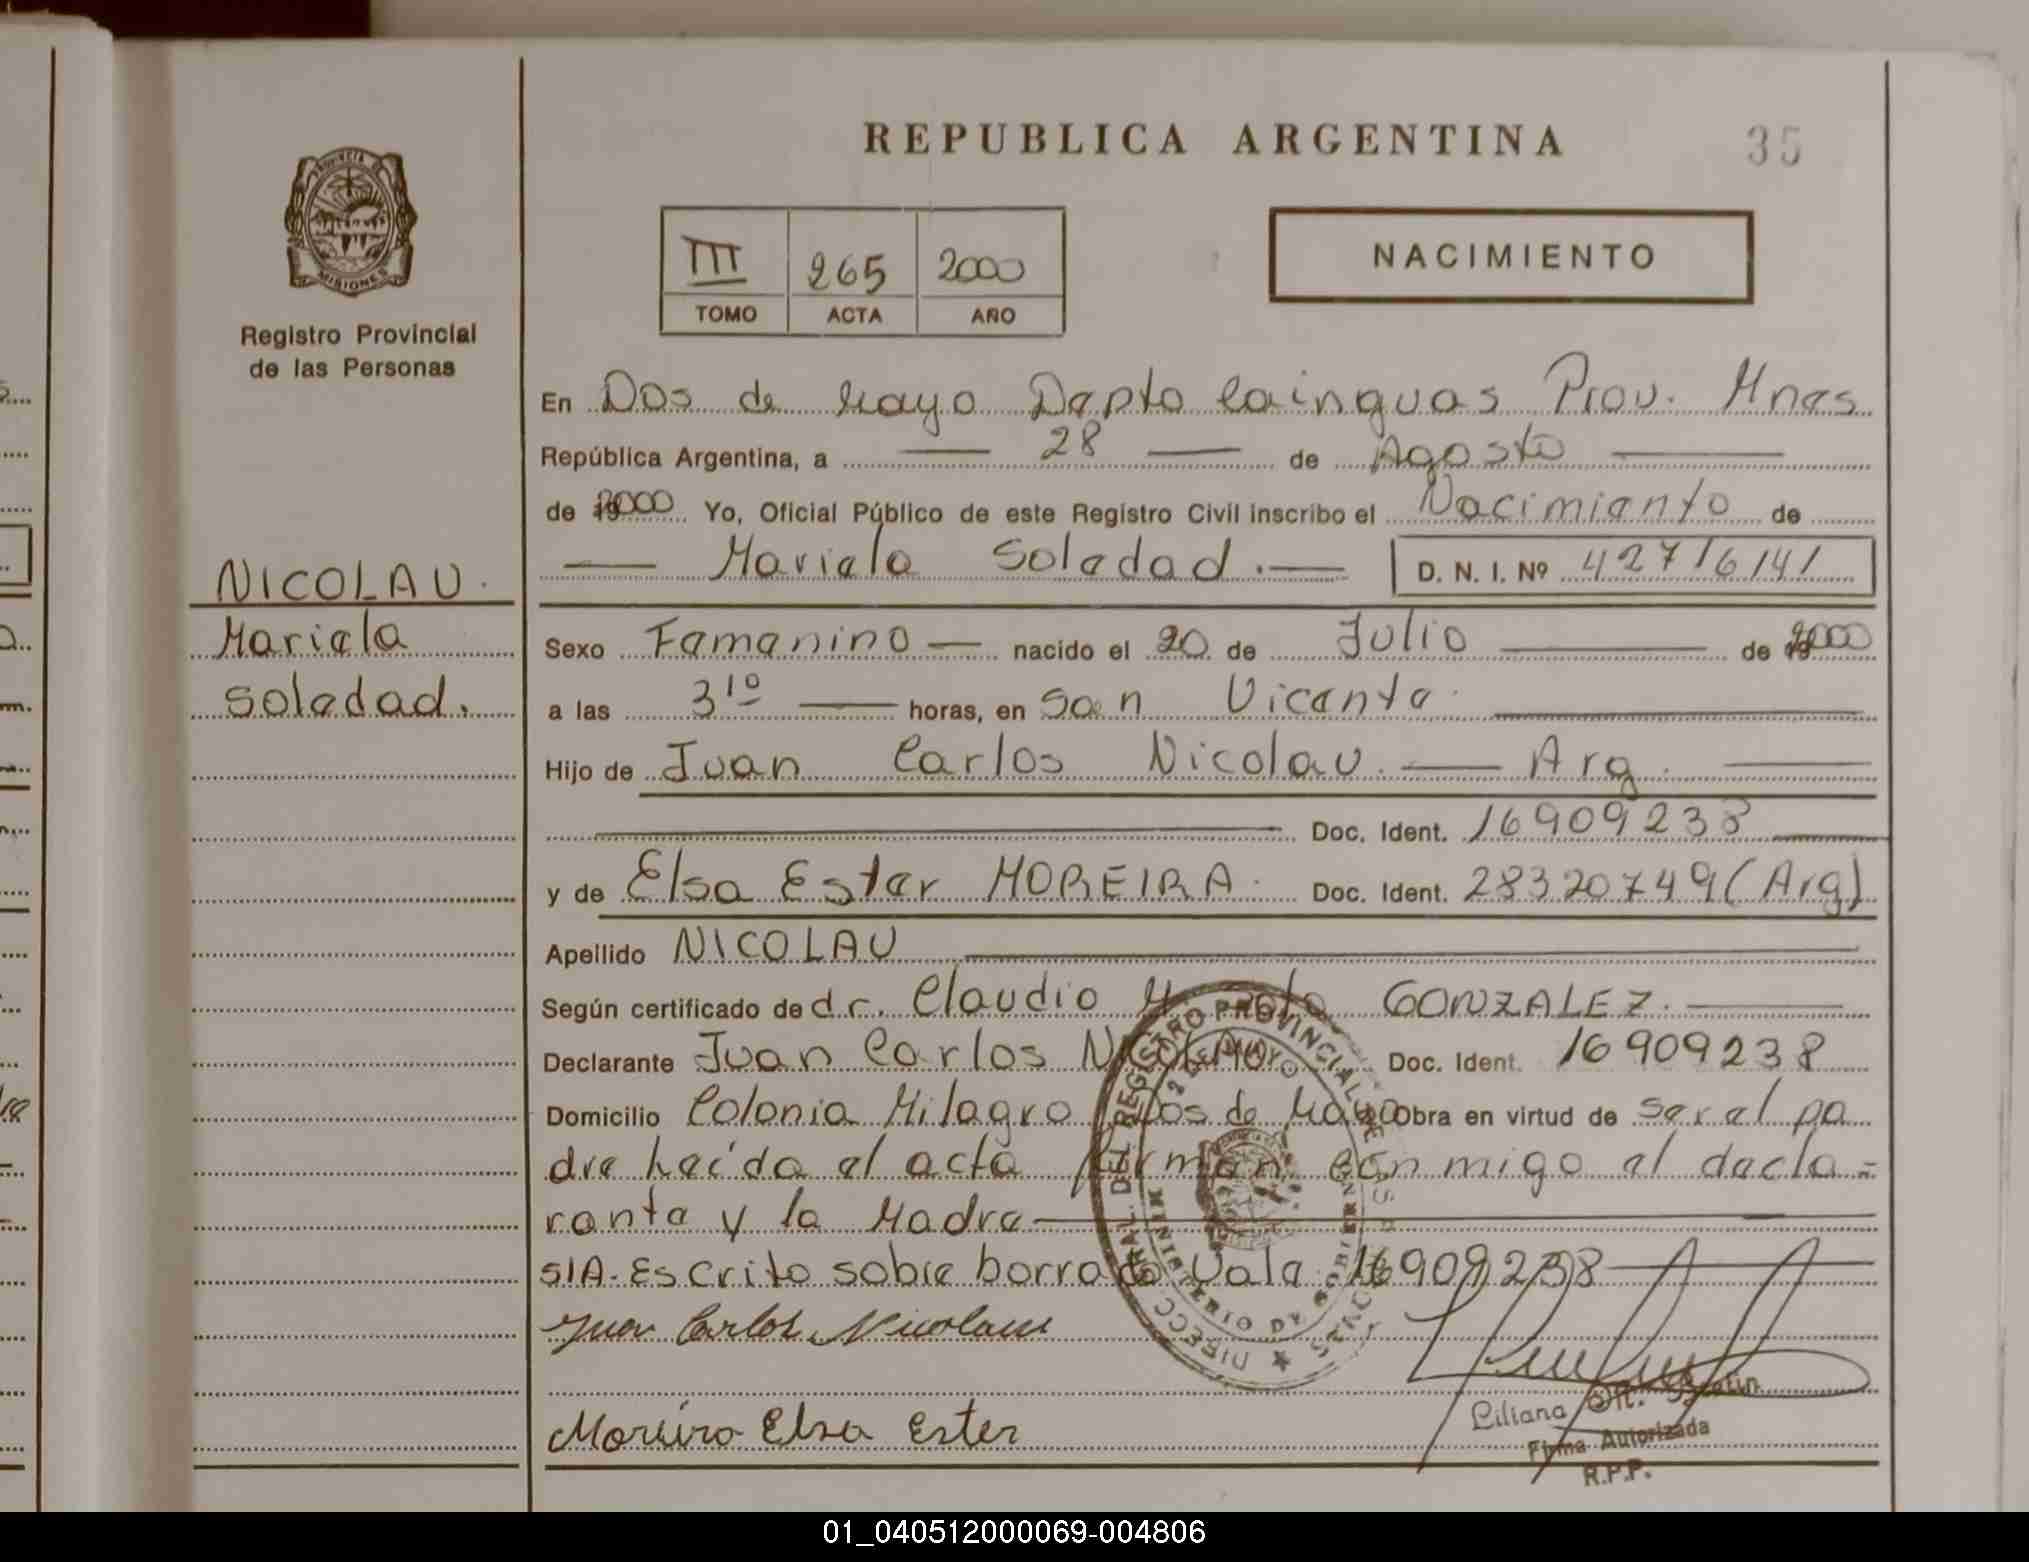 REPUBLICA ARGENTINA
35
PROVINCIA DE
MISIONES
Registro Provincial
de las Personas
III 265 2000
TOMO ACTA AÑO
NACIMIENTO
En Dos de Mayo Depto Cainguas Prov. Mnes
República Argentina, a 28 de Agosto
de 2000 Yo, Oficial Público de este Registro Civil inscribo el Nacimiento de
Mariela Soledad. D. N. I. Nº 42716141
NICOLAU.
Mariela
Soledad.
Sexo Femenino nacido el 20 de Julio de 2000
a las 3¹⁰ horas, en San Vicente.
Hijo de Juan Carlos Nicolau. Arg.
Doc. Ident. 16909238
y de Elsa Ester MOREIRA. Doc. Ident. 28320749 (Arg)
Apellido NICOLAU
Según certificado de dr. Claudio GONZALEZ.
Declarante Juan Carlos NICOLAU Doc. Ident. 16909238
Domicilio Colonia Milagro Dos de Mayo Obra en virtud de ser el pa
dre Leído el acta firman conmigo el decla=
rante y la Madre
S/A. Escrito sobre borrado Vale 16909238
Juan Carlos Nicolau
Moreira Elsa Ester
Liliana
Firma Autorizada
R.P.P.
DIRECC. GRAL. DEL REGISTRO PROVINCIAL DE LAS PERSONAS
2 DE MAYO
MINISTERIO DE GOBIERNO
01_040512000069-004806